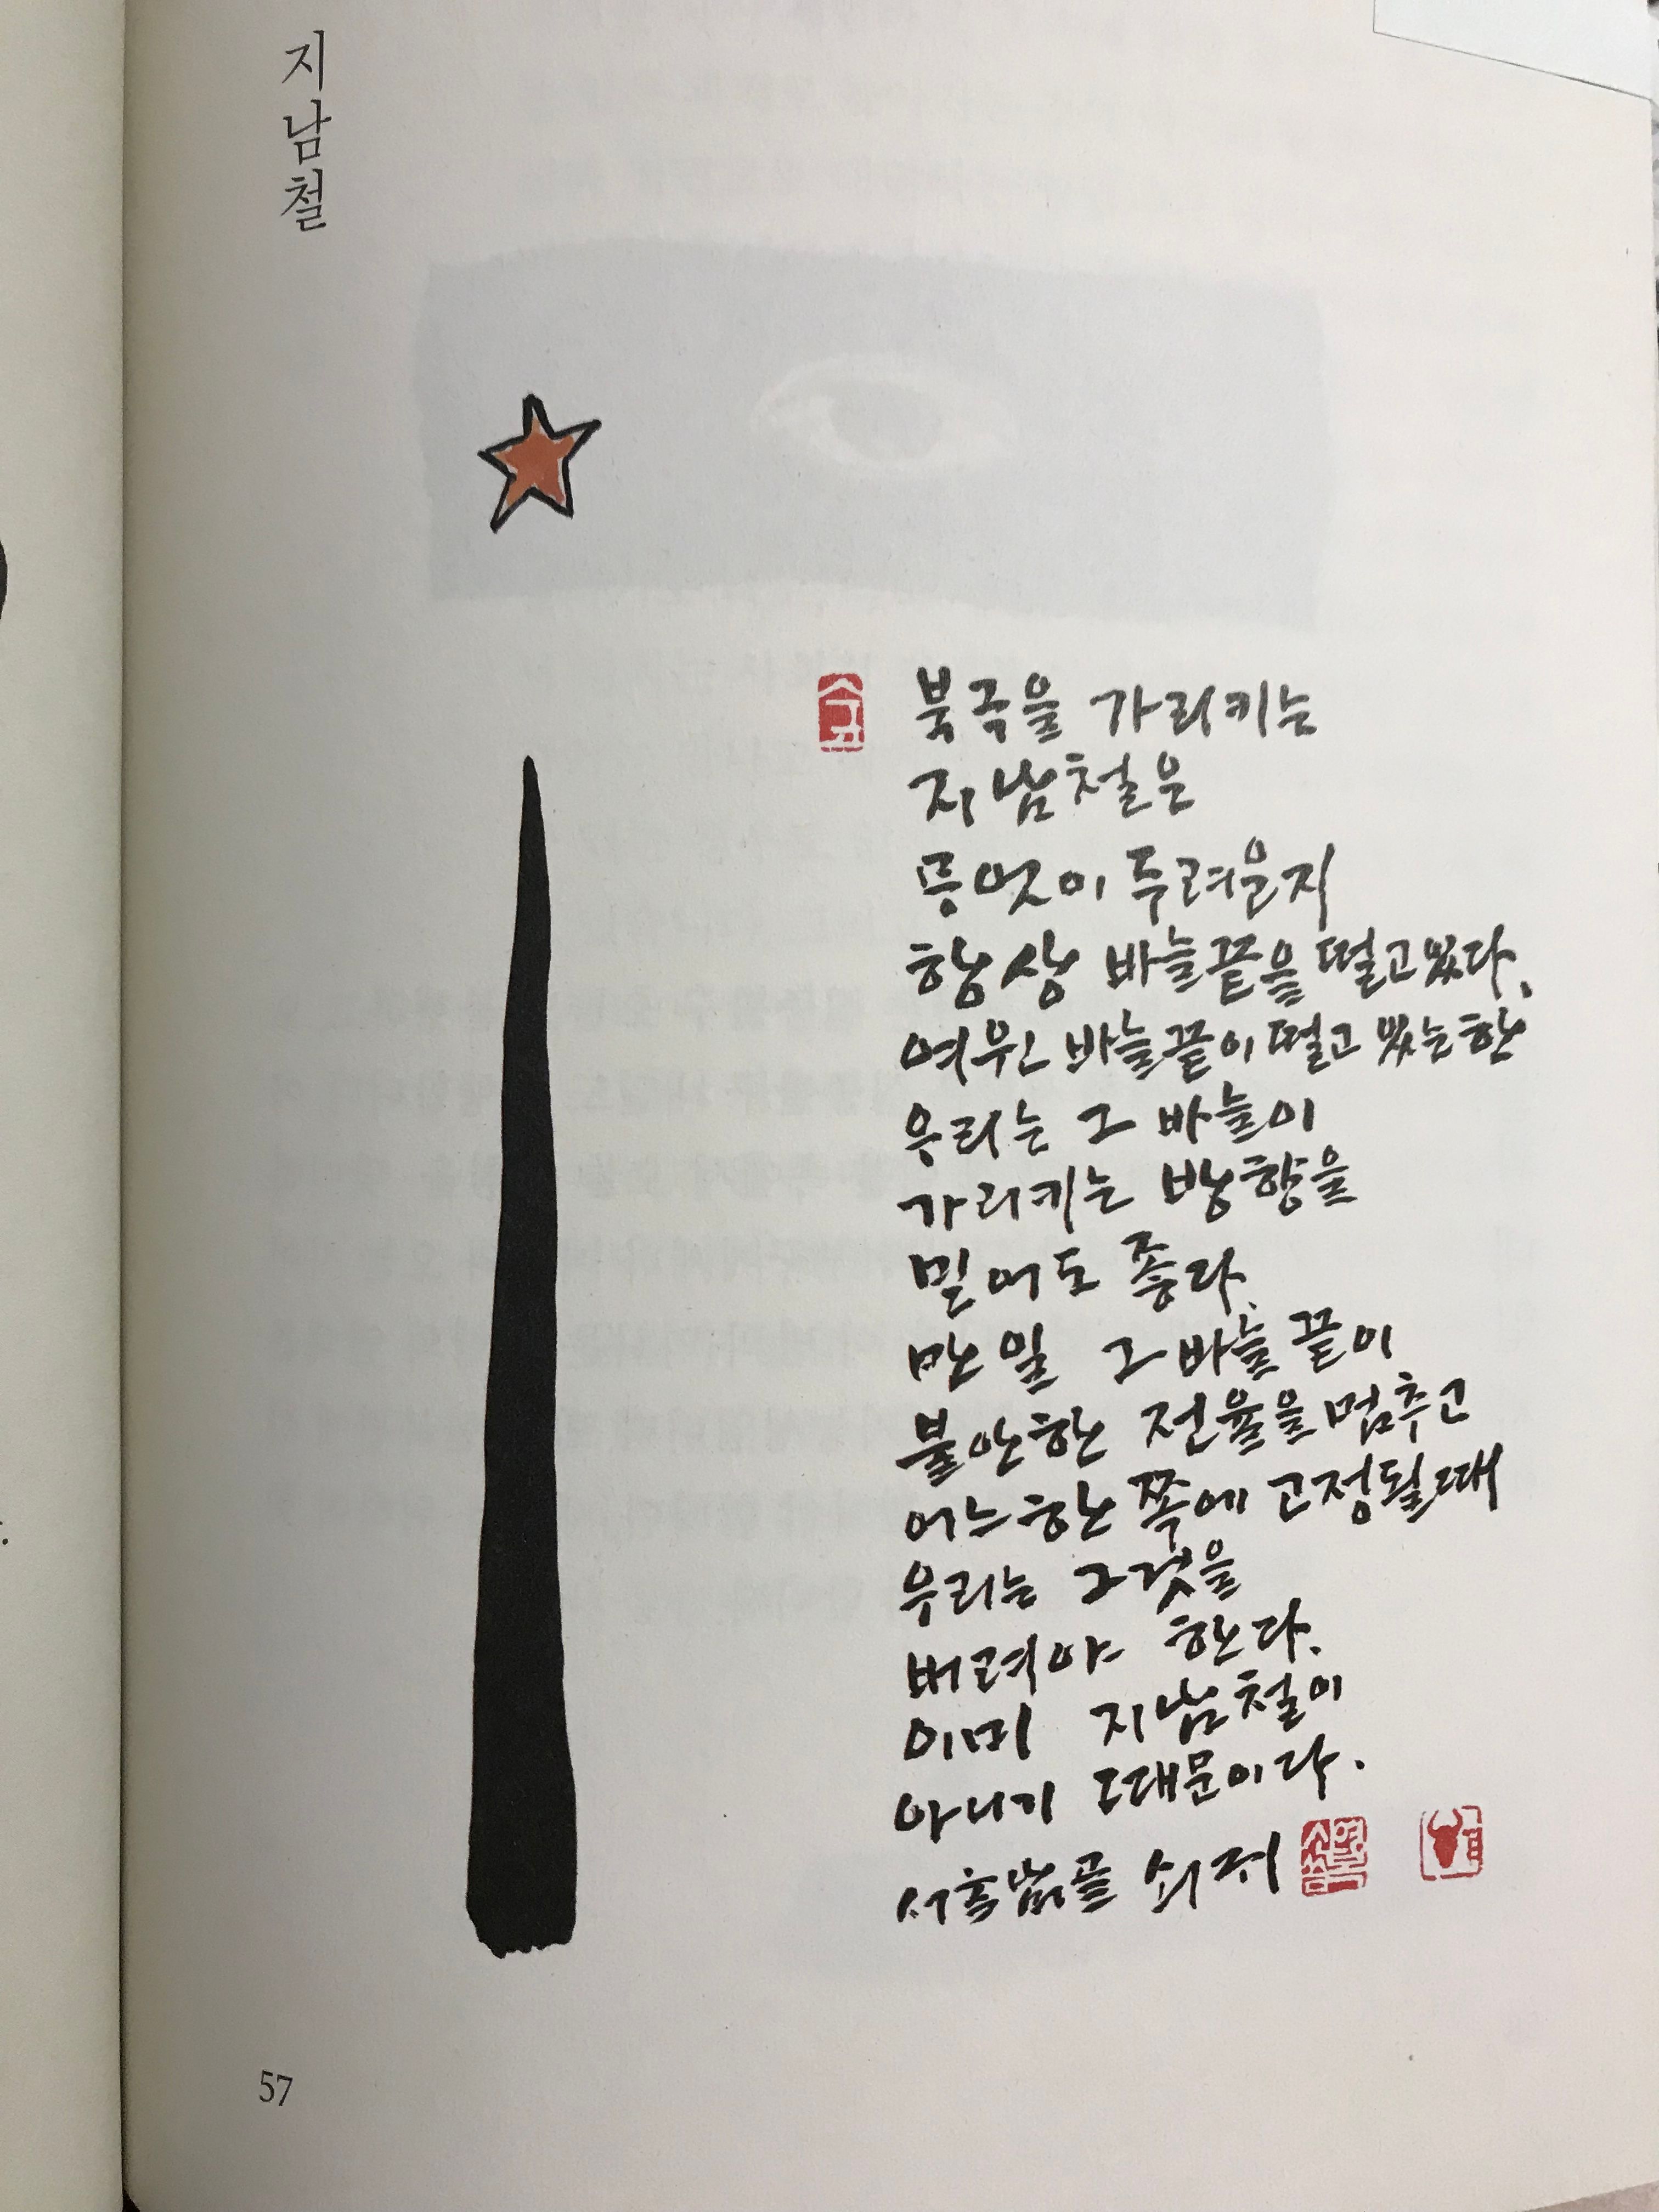 지남철
북극을 가리키는
지남철은
무엇이 두려운지
항상 바늘끝을 떨고있다.
여윈 바늘끝이 떨고 있는한
우리는 그 바늘이
가리키는 방향을
믿어도 좋다.
만일 그 바늘 끝이
불안한 전율을 멈추고
어느 한 쪽에 고정될때
우리는 그것을
버려야 한다.
이미 지남철이
아니기 때문이다.
쇠귀
57